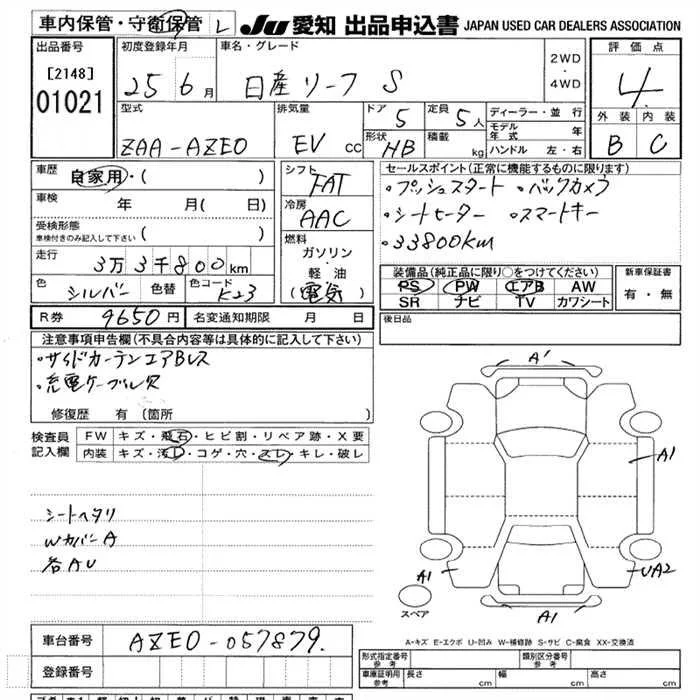 車内保管・守衛保管 L JU 愛知 出品申込書 JAPAN USED CAR DEALERS ASSOCIATION
出品番号 初度登録年月 車名・グレード 評価点
[2148] 25 6月 日産リーフ S 2WD・4WD 4
01021
型式 排気量 ドア 5 定員 5人 ディーラー・並行 外装 内装
ZAA-AZE0 EV cc 形状 HB 積載 kg モデル年式 年 B C
ハンドル 左・右
車歴 自家用・( ) シフト FAT セールスポイント(正常に機能するものに限ります)
車検 年 月(日) 冷房 AAC 。プッシュスタート 。バックカメラ
受検形態 ( ) 。シートヒーター 。スマートキー
車検付きのみ記入して下さい 燃料 。33800km
走行 3万3千800km ガソリン・軽油(電気)
装備品(純正品に限り○をつけてください) 新車保証書
色 シルバー 色替 色コード K23 PS PW エアB AW 有・無
SR ナビ TV カワシート
R券 9650円 名変通知期限 月 日 後日品
注意事項申告欄(不具合内容等は具体的に記入して下さい)
・サイドカーテンエアBレス
・充電ケーブル欠
修復歴 有(箇所 )
A'
検査員記入欄 FW キズ・飛石・ヒビ割・リペア跡・X要
内装 キズ・汚レ・コゲ・穴・スレ・キレ・破レ
A1
シートヘタリ
WカバーA
各AU
A1 UA2
スペア A1
A-キズ E-エクボ U-凹み W-補修跡 S-サビ C-腐食 XX-交換済
車台番号 AZE0-057879.
登録番号
形式指定番号 参考 類別区分番号 参考
車庫証明用 参考 長さ cm 幅 cm 高さ cm